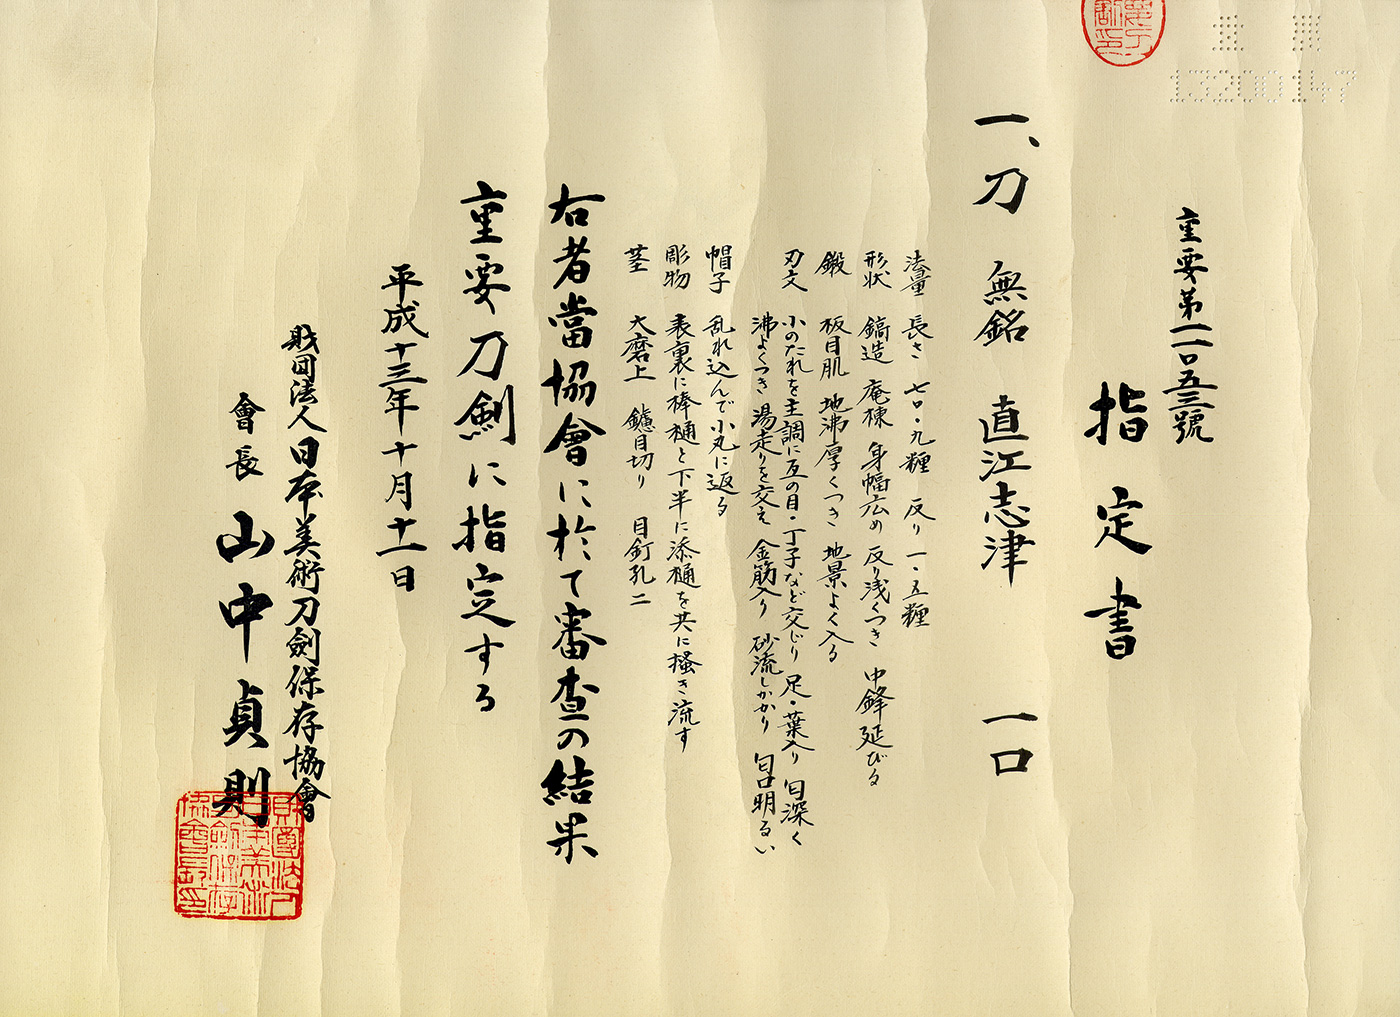 重要第一一〇五三號
指定書
一、刀 無銘 直江志津 一口
法量 長さ 七〇・九糎 反り 一・五糎
形状 鎬造 庵棟 身幅広め 反り浅くつき 中鋒延びる
鍛 板目肌 地沸厚くつき 地景よく入る
刃文 小のたれを主調に互の目・丁子など交じり 足・葉入り 匂深く
沸よくつき 湯走りを交え 金筋入り 砂流しかかり 匂口明るい
帽子 乱れ込んで小丸に返る
彫物 表裏に棒樋と下半に添樋を共に掻き流す
茎 大磨上 鑢目切り 目釘孔二
右者當協會に於て審査の結果
重要刀劍に指定する
平成十三年十月十一日
財団法人日本美術刀劍保存協會
會長 山中貞則
13200147